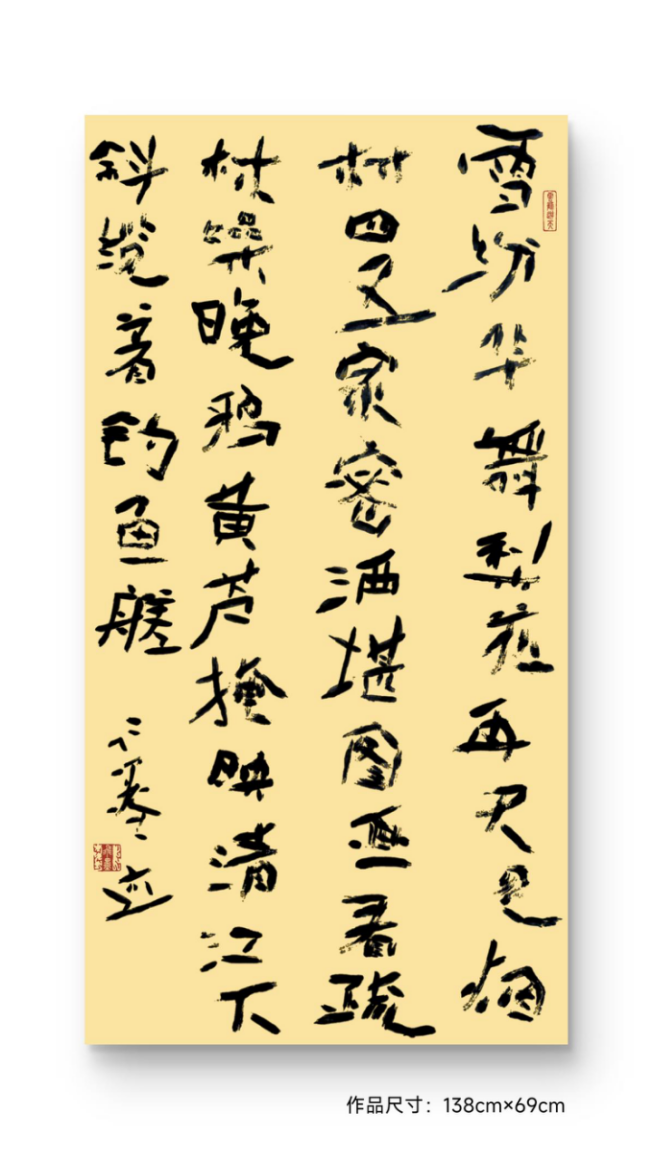 雪粉华舞梨花再不见烟
村四五家密洒堪图画看疏
林噪晚鸦黄芦掩映清江下
斜缆着钓鱼艖
作品尺寸：138cm×69cm